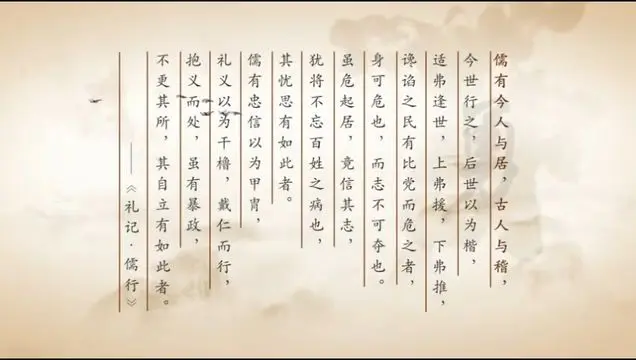 儒有今人与居，古人与稽，
今世行之，后世以为楷，
适弗逢世，上弗援，下弗推，
谗谄之民有比党而危之者，
身可危也，而志不可夺也。
虽危起居，竟信其志，
犹将不忘百姓之病也，
其忧思有如此者。
儒有忠信以为甲胄，
礼义以为干橹，戴仁而行，
抱义而处，虽有暴政，
不更其所，其自立有如此者。
——《礼记·儒行》